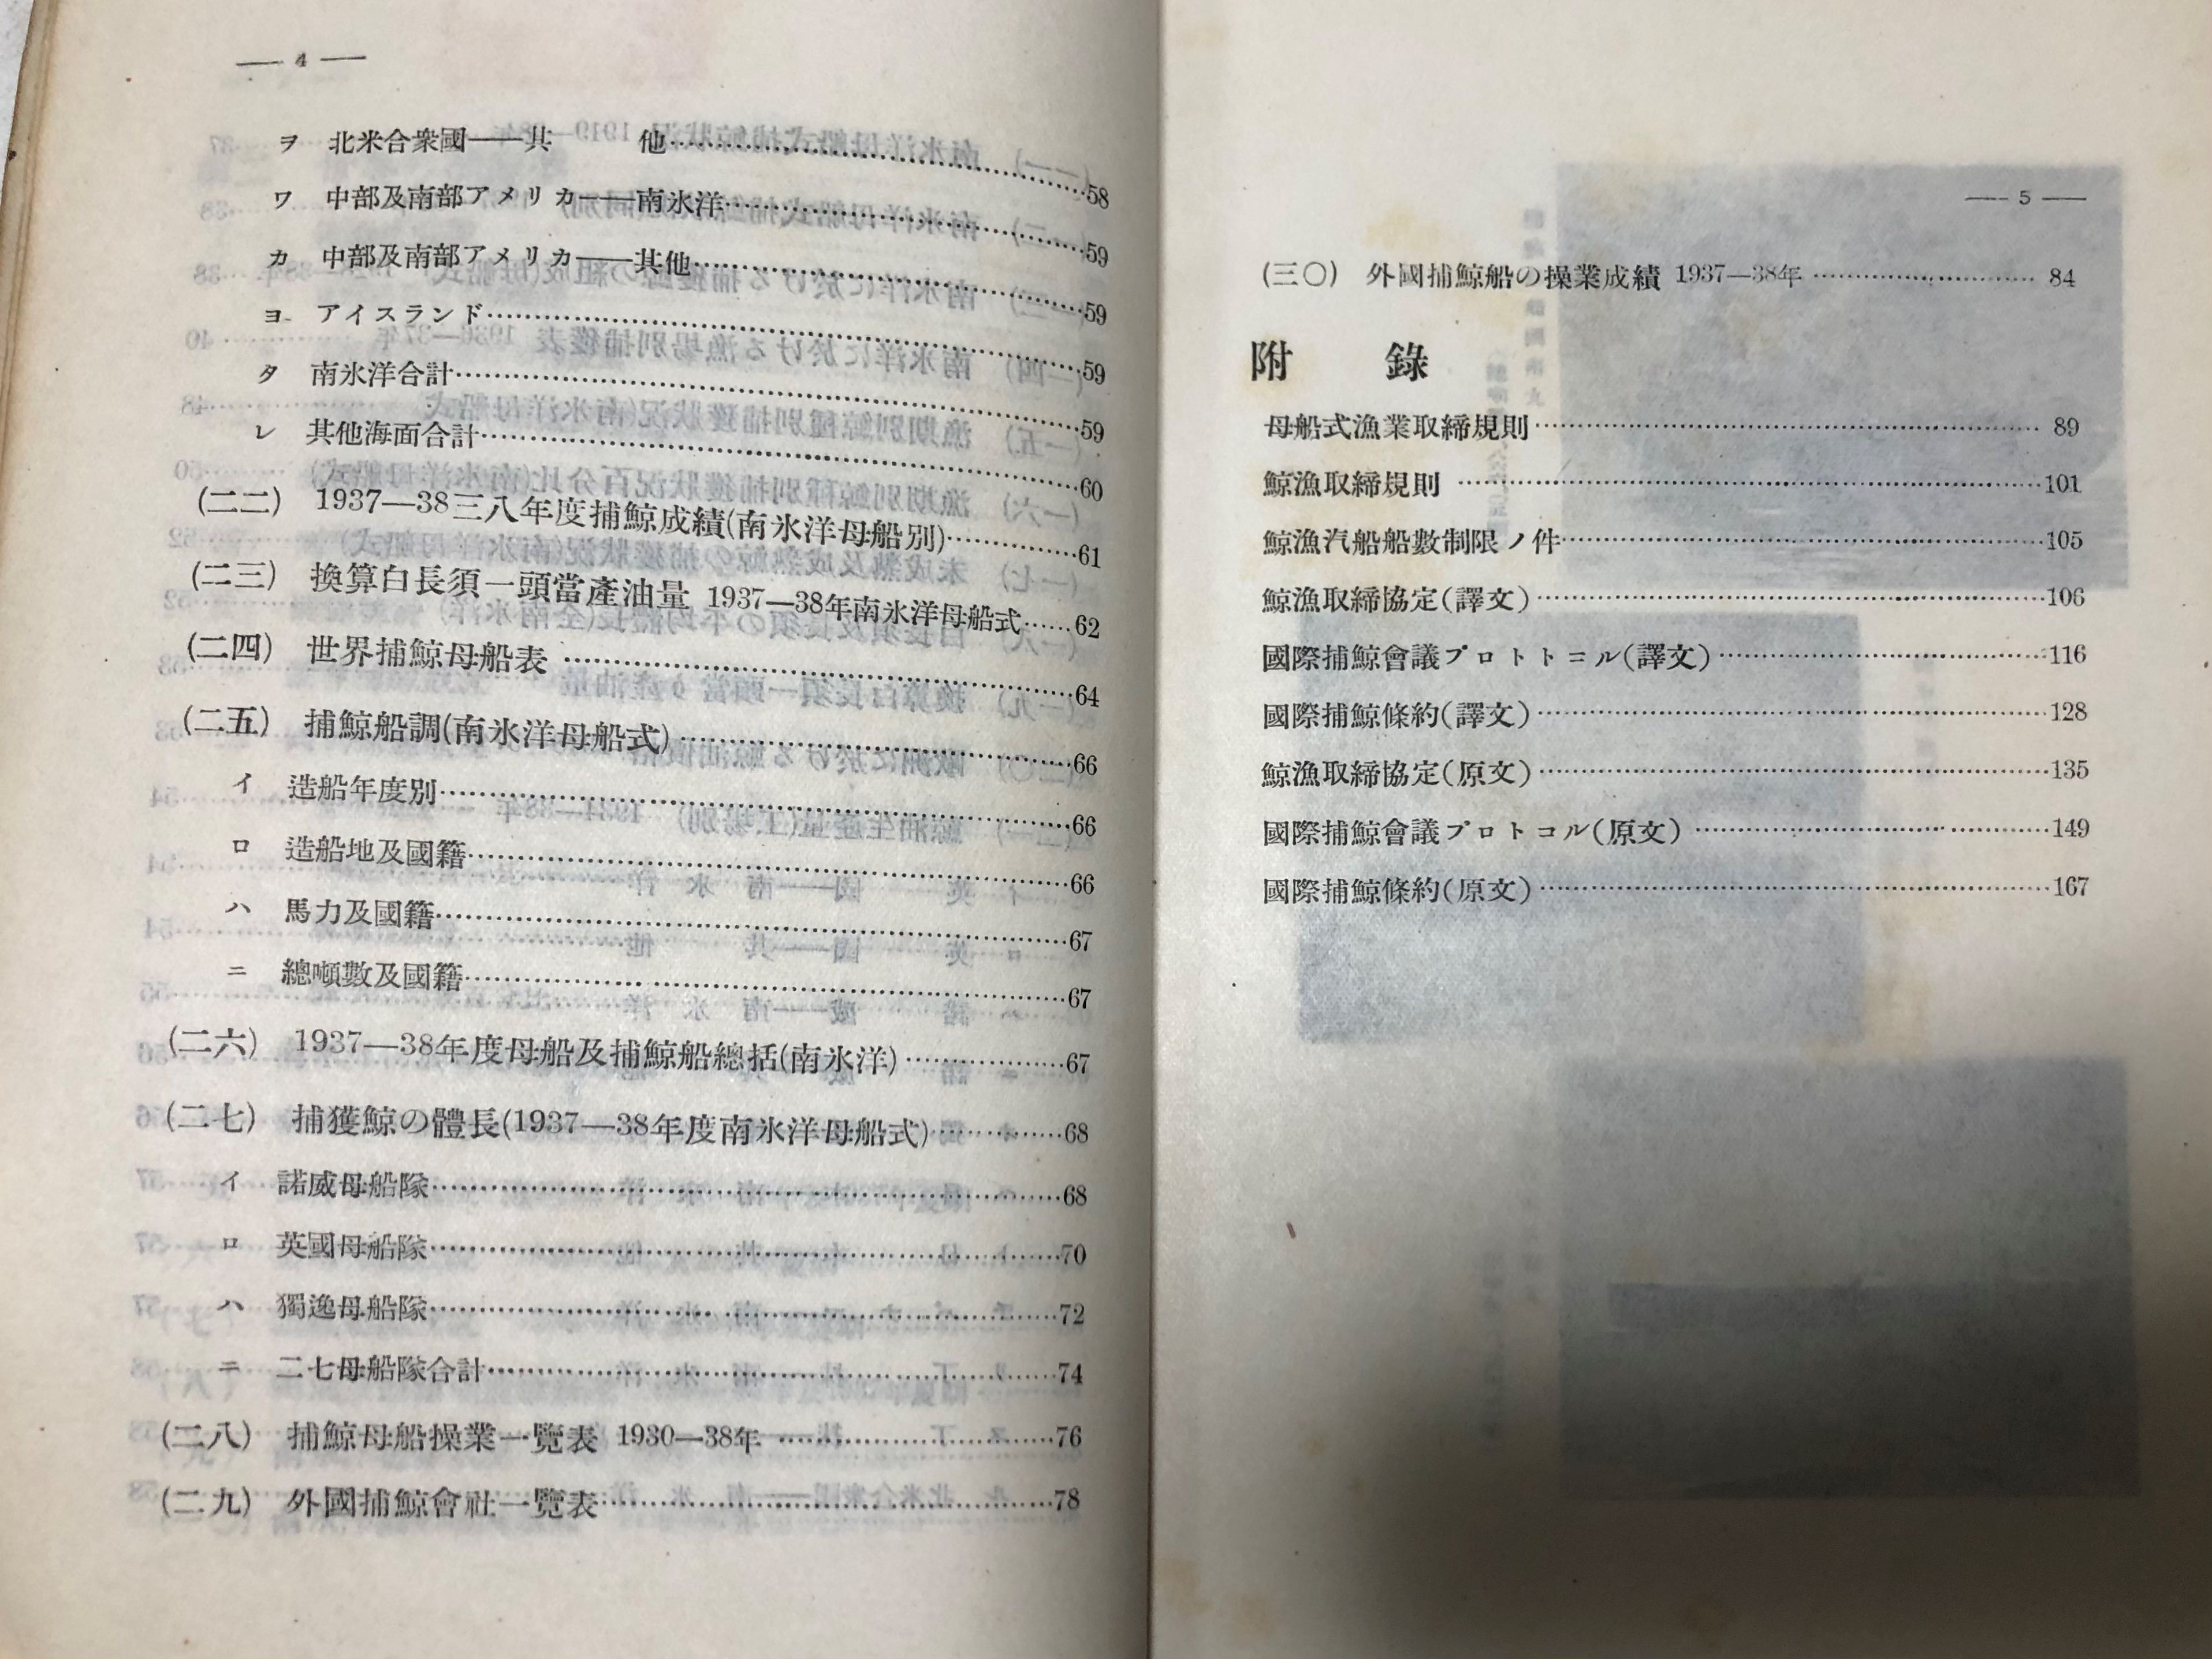 — 4 —
ヲ 北米合衆國——共 他……58
ワ 中部及南部アメリカ——南氷洋……59
カ 中部及南部アメリカ——其他……59
ヨ アイスランド……59
タ 南氷洋合計……59
レ 其他海面合計……60
(二二) 1937—38三八年度捕鯨成績(南氷洋母船別)……61
(二三) 換算白長須一頭當產油量 1937—38年南氷洋母船式……62
(二四) 世界捕鯨母船表……64
(二五) 捕鯨船調(南氷洋母船式)……66
イ 造船年度別……66
ロ 造船地及國籍……66
ハ 馬力及國籍……67
ニ 總噸數及國籍……67
(二六) 1937—38年度母船及捕鯨船總括(南氷洋)……67
(二七) 捕獲鯨の體長(1937—38年度南氷洋母船式)……68
イ 諾威母船隊……68
ロ 英國母船隊……70
ハ 獨逸母船隊……72
ニ 二七母船隊合計……74
(二八) 捕鯨母船操業一覽表 1930—38年……76
(二九) 外國捕鯨會社一覽表……78
— 5 —
(三〇) 外國捕鯨船の操業成績 1937—38年……84
附 錄
母船式漁業取締規則……89
鯨漁取締規則……101
鯨漁汽船船數制限ノ件……105
鯨漁取締協定(譯文)……106
國際捕鯨會議プロトトニル(譯文)……116
國際捕鯨條約(譯文)……128
鯨漁取締協定(原文)……135
國際捕鯨會議プロトコル(原文)……149
國際捕鯨條約(原文)……167